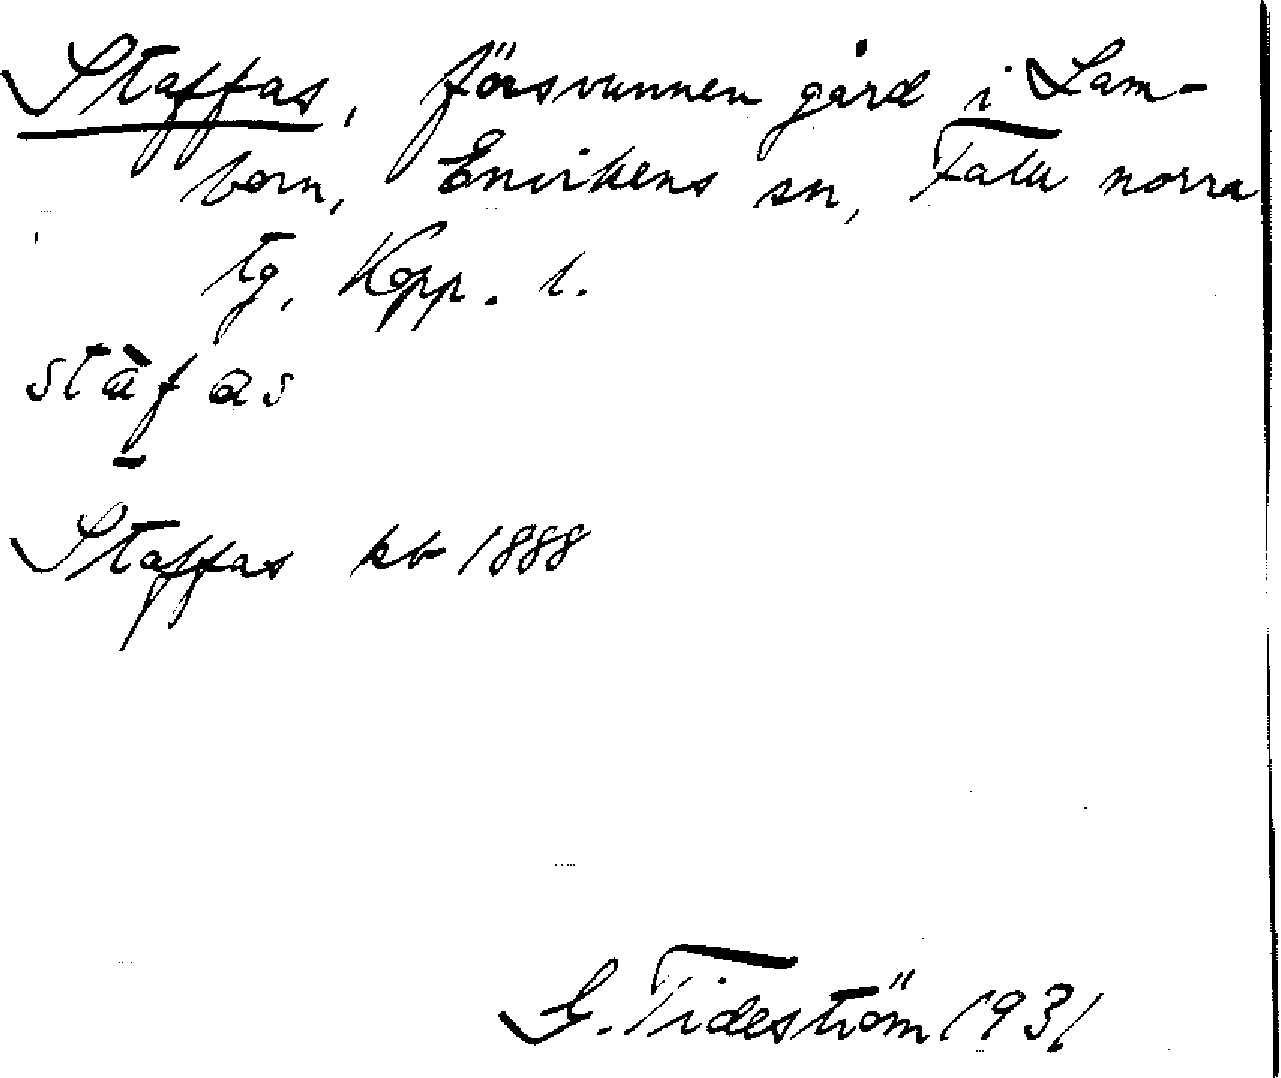 Staffas, försvunnen gård i Lam-
born, Envikens sn, Falu norra
tg, Kopp. l.
stàf as
Staffas kb 1888
G. Tideström 1931